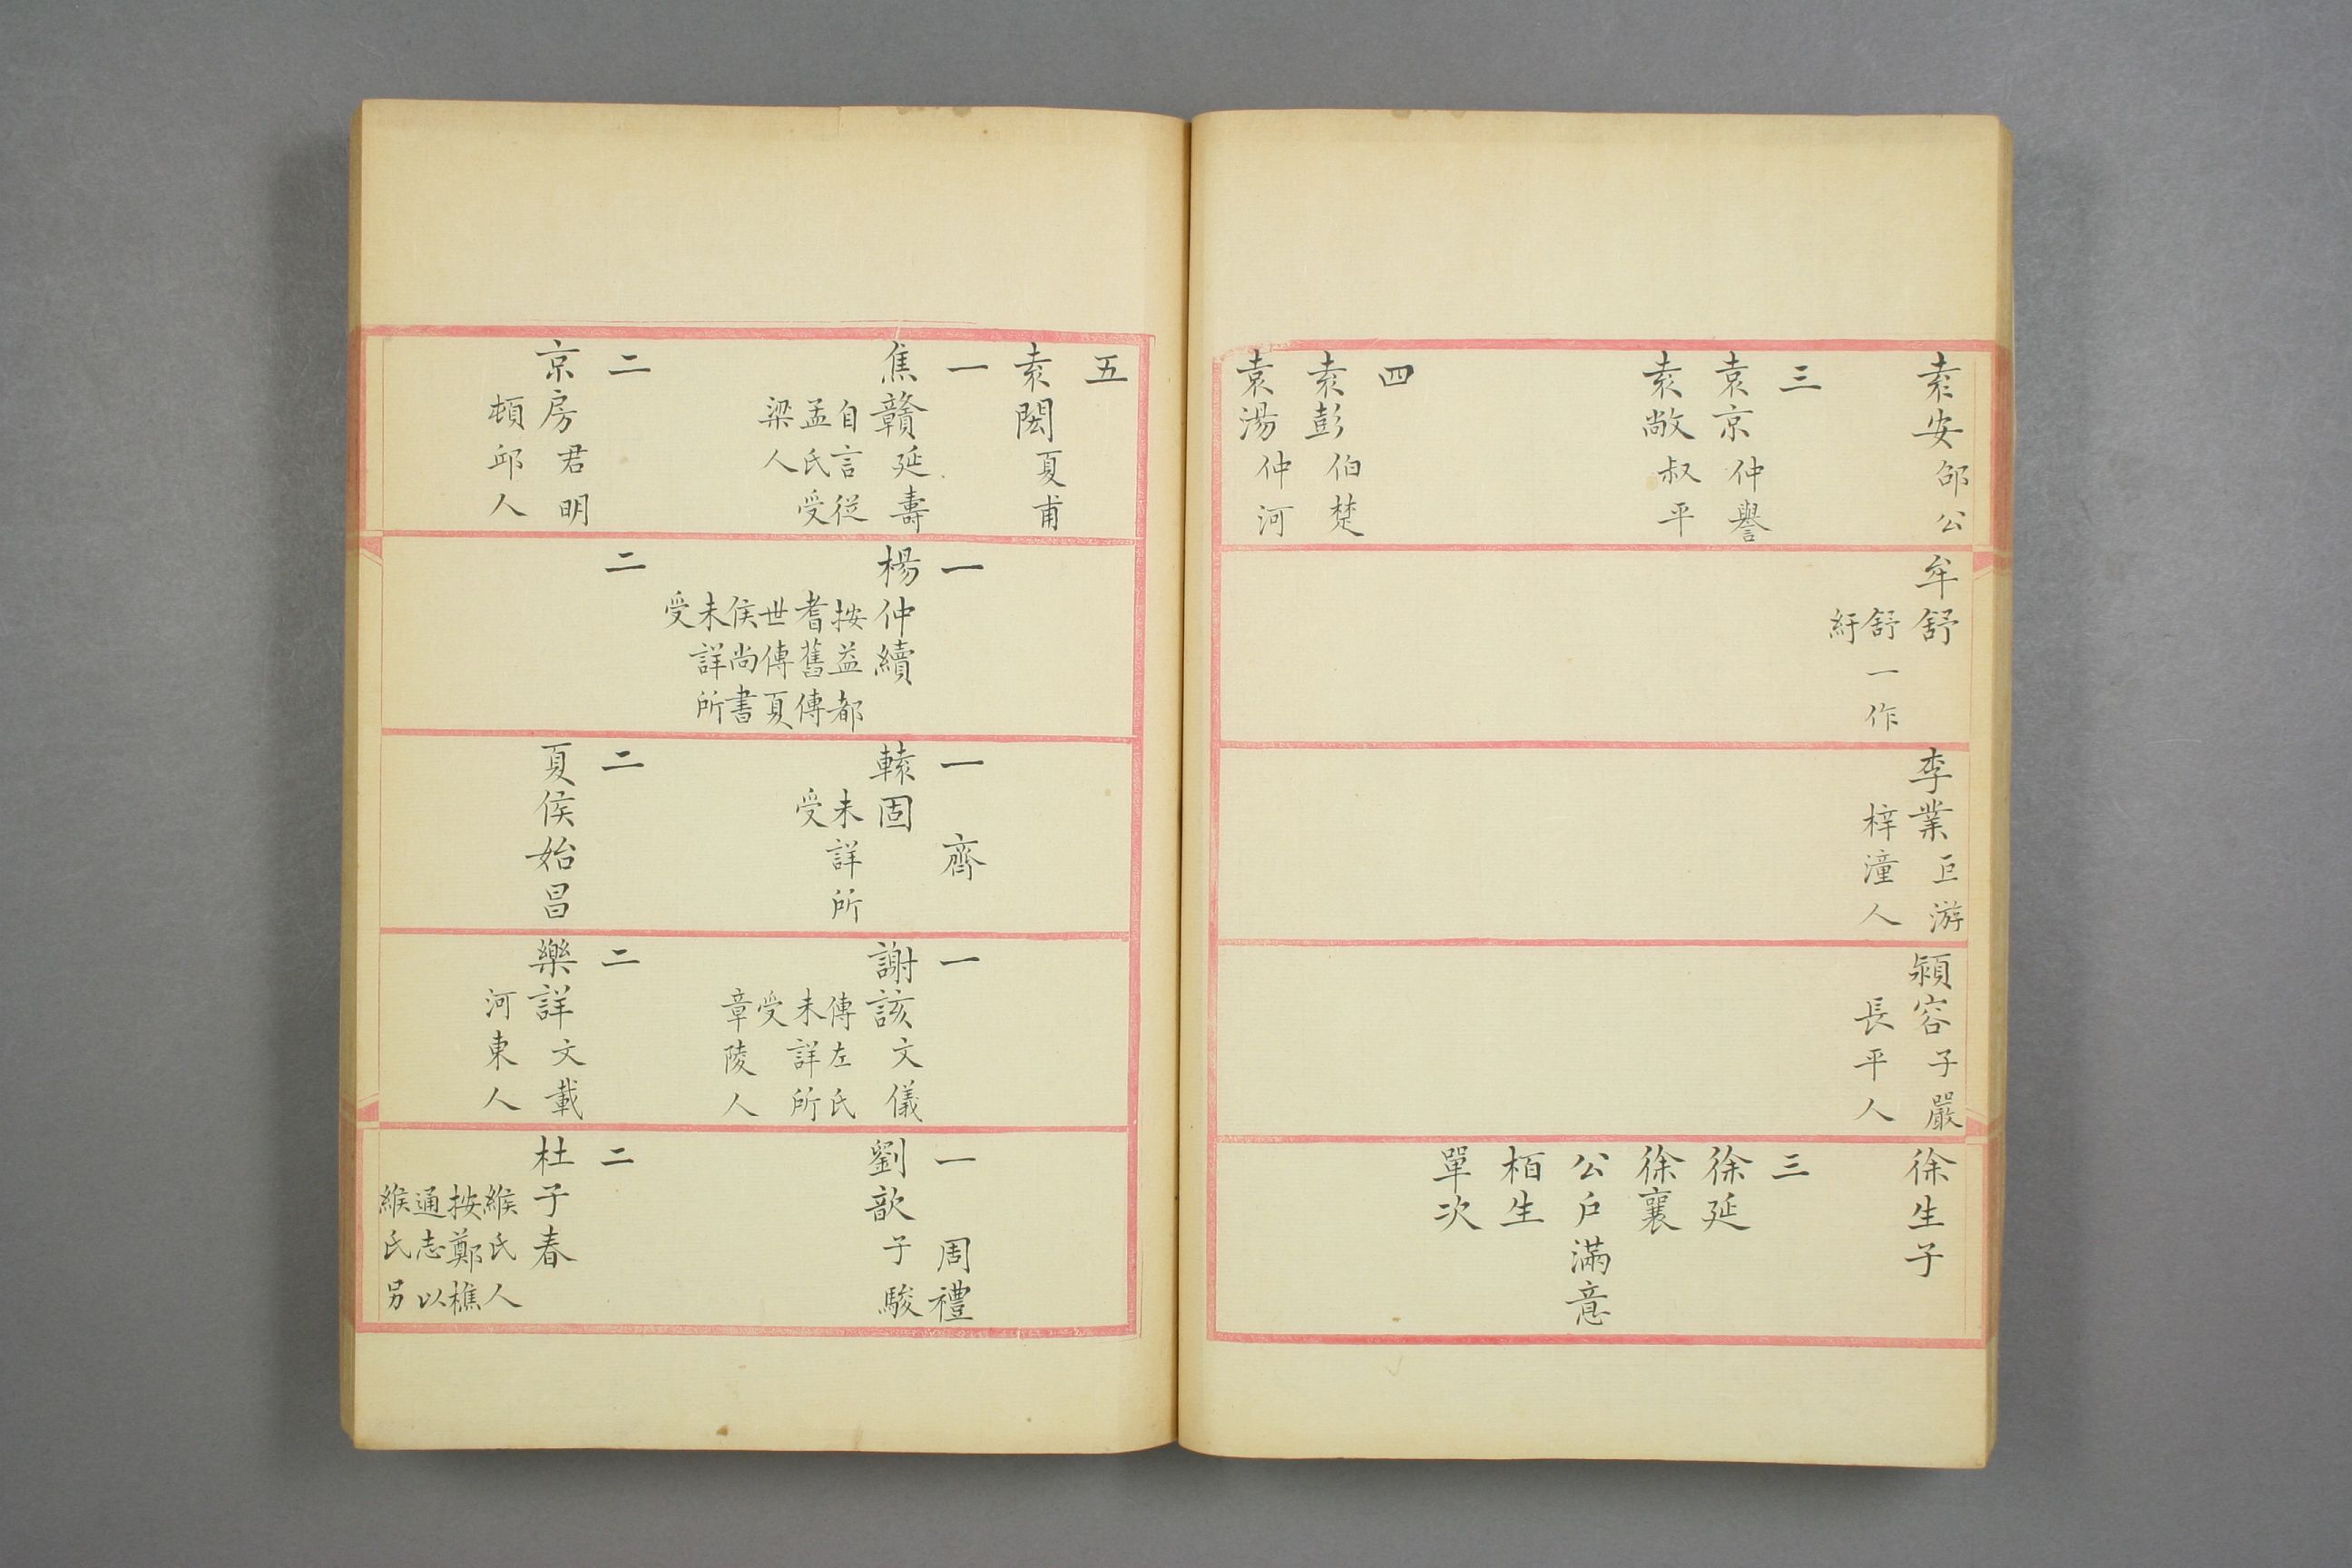 袁安邵公
三
袁京仲譽
袁敞叔平
四
袁彭伯楚
袁湯仲河
牟舒
舒一作
紆
李業巨游
梓潼人
潁容子嚴
長平人
徐生子
三
徐延
徐襄
公戶滿意
栢生
單次
五
袁閎夏甫
一
焦贛延壽
自言從
孟氏受
梁人
二
京房君明
頓邱人
一
楊仲續
按益都
耆舊傳
世傳夏
侯尚書
未詳所
受
二
一齊
轅固
未詳所
受
二
夏侯始昌
一
謝該文儀
傳左氏
未詳所
受
章陵人
二
樂詳文載
河東人
一周禮
劉歆子駿
二
杜子春
緱氏人
按鄭樵
通志以
緱氏另